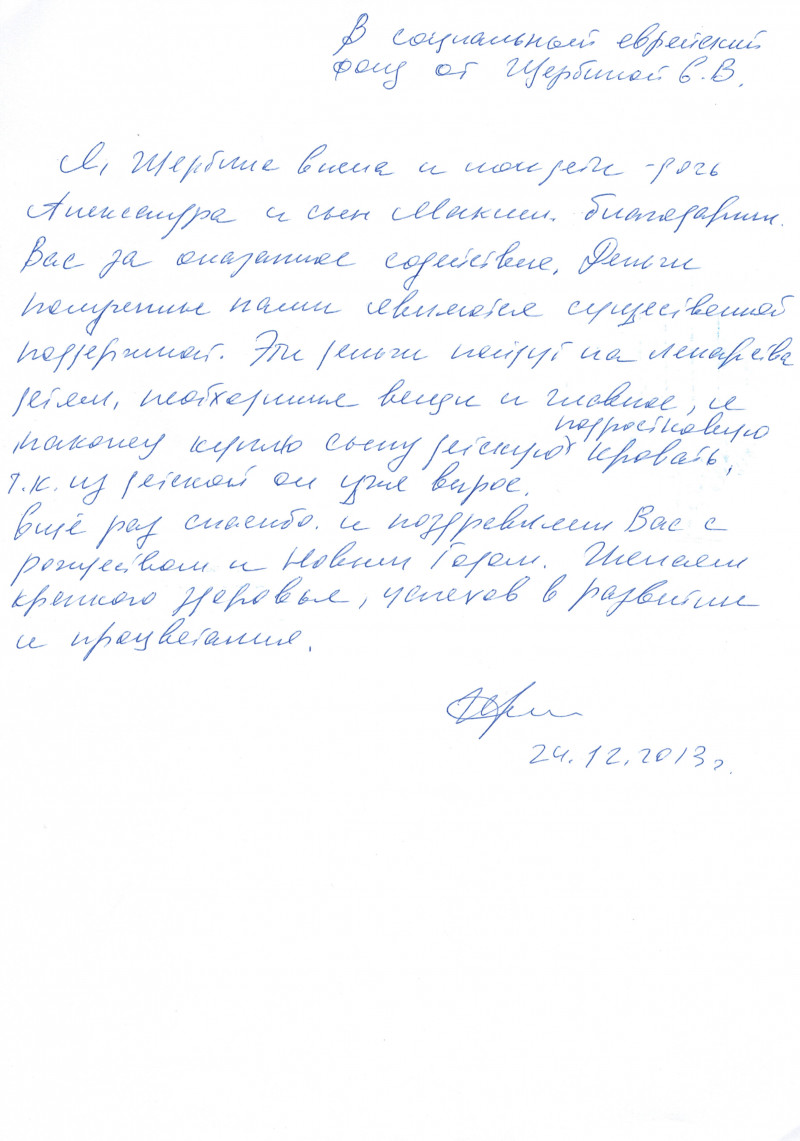 В социальный еврейский
фонд от Щербиной Е.В.
Я, Щербина Елена и мои дети - дочь
Александра и сын Максим. благодарим
Вас за оказанное содействие. Деньги
полученные нами являются существенной
поддержкой. Эти деньги пойдут на лекарства
детям, необходимые вещи и главное, я
подростковую
наконец куплю сыну детскую кровать,
т.к. из детской он уже вырос.
Ещё раз спасибо. и поздравляем Вас с
рождеством и Новым Годом. Желаем
крепкого здоровья, успехов в развитии
и процветания.
24.12.2013г.